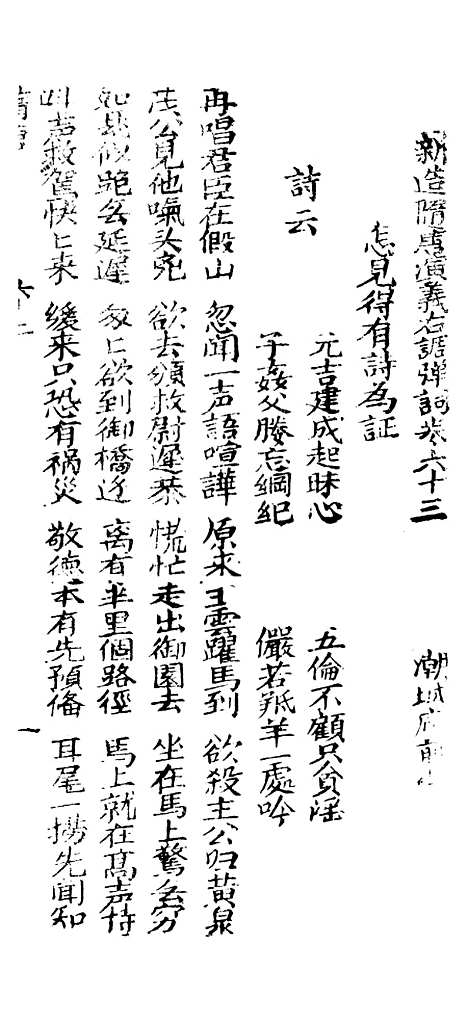 新造隋唐演義右調彈詞卷六十三 潮城府前
怎見得有詩為証
詩云
元吉建成起昧心 五倫不顧只貪淫
子姦父媵忘綱紀 儼若羝羊一處吟
再唱君臣在假山 忽聞一声語喧譁 原來王雲躍馬到 欲殺主公归黄泉
茂公見他嘴头兇 欲去頒救尉遲恭 慌忙走出御園去 坐在馬上驚無穷
延遲 欲到御橋边 离有半里個路徑 馬上就在高声特
声救駕快匕来 緩来只恐有禍災 敬德本有先預俻 耳尾一擄先聞知
一